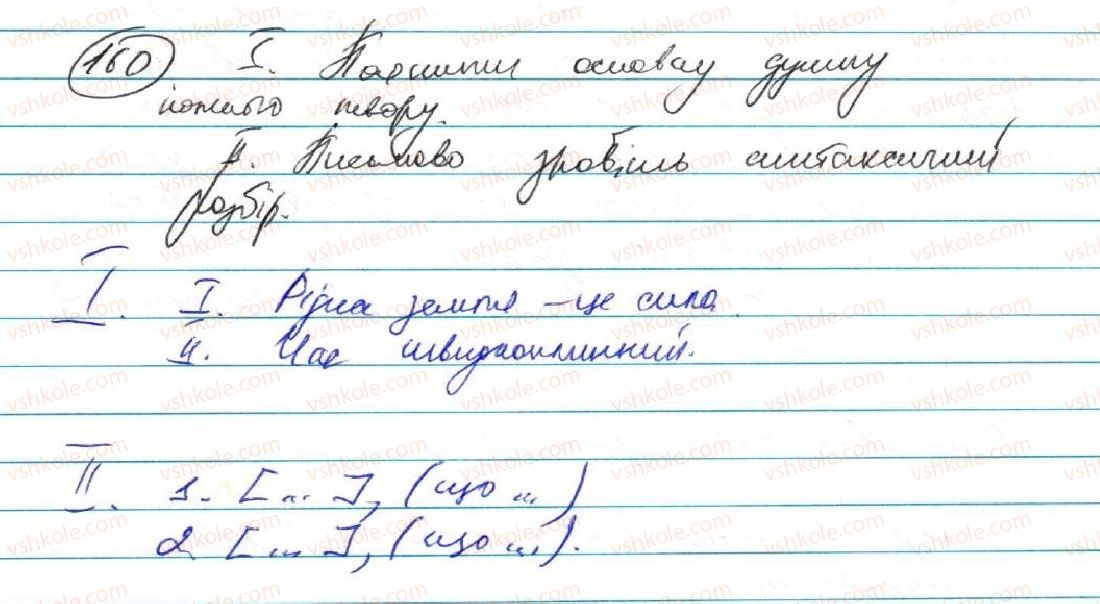 160 I. Написати основну думку
кожного твору.
II. Письмово зробіть синтаксичний
розбір.
I. I. Рідна земля – це сила.
II. Час швидкоплинний.
II. 1. [... ], (що ...)
2. [... ], (що ...).